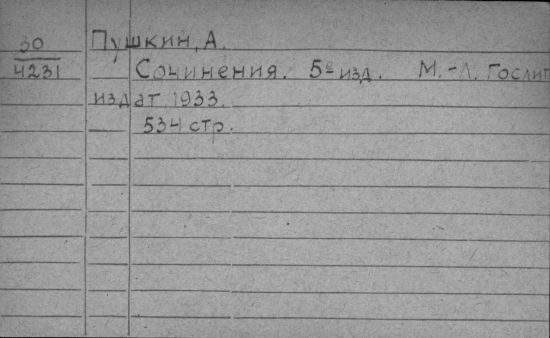 30
4231
Пушкин, А.
Сочинения. 5е изд. М.-Л. Гослит
издат 1933.
534 стр.